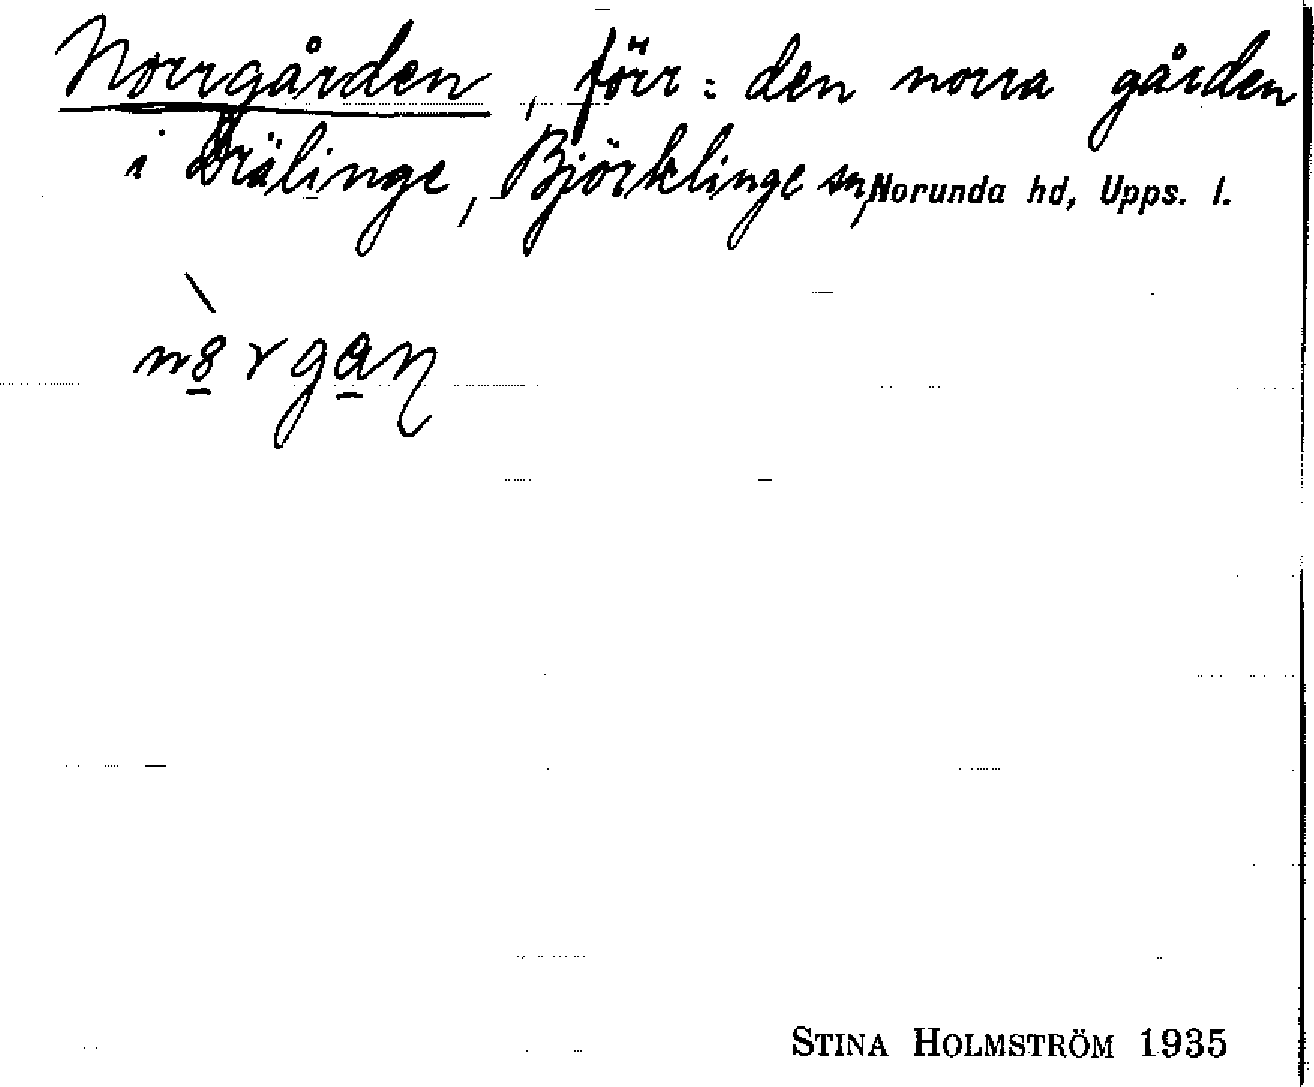 Norrgården, förr: den norra gården
i Drälinge, Björklinge sn, Norunda hd, Upps. l.
STINA HOLMSTRÖM 1935